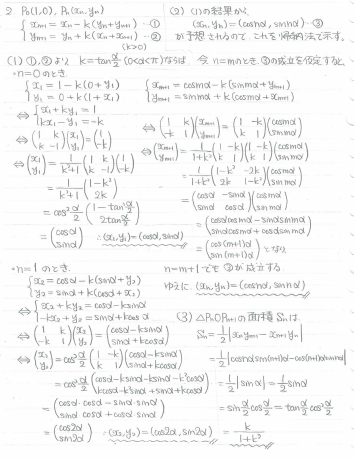 2. P₀(1,0), Pₙ(xₙ, yₙ)
{ xₙ₊₁ = xₙ - k(yₙ + yₙ₊₁) …①
yₙ₊₁ = yₙ + k(xₙ + xₙ₊₁) …②
(k>0)
(1) ①, ②より k = tan α/2 (0<α<π) ならば
・n=0のとき
{ x₁ = 1 - k(0 + y₁)
y₁ = 0 + k(1 + x₁)
⇔ { x₁ + ky₁ = 1
kx₁ - y₁ = -k
⇔ (1 k / k -1)(x₁ / y₁) = (1 / -k)
⇔ (x₁ / y₁) = 1/(k²+1) (1 k / k -1)(1 / -k)
= 1/(k²+1) (1-k² / 2k)
= cos² α/2 (1 - tan² α/2 / 2tan α/2)
= (cosα / sinα) ∴ (x₁, y₁) = (cosα, sinα)
・n=1のとき.
{ x₂ = cosα - k(sinα + y₂)
y₂ = sinα + k(cosα + x₂)
⇔ { x₂ + ky₂ = cosα - ksinα
-kx₂ + y₂ = sinα + kcosα
⇔ (1 k / -k 1)(x₂ / y₂) = (cosα - ksinα / sinα + kcosα)
⇔ (x₂ / y₂) = cos² α/2 (1 -k / k 1)(cosα - ksinα / sinα + kcosα)
= cos² α/2 (cosα - ksinα - ksinα - k²cosα / kcosα - k²sinα + sinα + kcosα)
= (cosα·cosα - sinα·sinα / sinα·cosα + cosα·sinα)
= (cos2α / sin2α) ∴ (x₂, y₂) = (cos2α, sin2α)
(2) (1)の結果から.
(xₙ, yₙ) = (cosnα, sinnα) …③
が予想されるので、これを帰納法で示す。
今 n=mのとき、③の成立を仮定すると、
{ xₘ₊₁ = cosmα - k(sinmα + yₘ₊₁)
yₘ₊₁ = sinmα + k(cosmα + xₘ₊₁)
⇔ (1 k / -k 1)(xₘ₊₁ / yₘ₊₁) = (1 -k / k 1)(cosmα / sinmα)
⇔ (xₘ₊₁ / yₘ₊₁) = 1/(1+k²) (1 -k / k 1)(1 -k / k 1)(cosmα / sinmα)
= 1/(1+k²) (1-k² -2k / 2k 1-k²)(cosmα / sinmα)
= (cosα -sinα / sinα cosα)(cosmα / sinmα)
= (cosαcosmα - sinαsinmα / sinαcosmα + cosαsinmα)
= (cos(m+1)α / sin(m+1)α) となり
n=m+1でも③が成立する
ゆえに (xₙ, yₙ) = (cosnα, sinnα)
(3) △P₀PₙPₙ₊₁の面積Sₙは
Sₙ = 1/2 |xₙyₙ₊₁ - xₙ₊₁yₙ|
= 1/2 |cosnαsin(n+1)α - cos(n+1)αsinnα|
= 1/2 |sinα| = 1/2 sinα
= sin α/2 cos α/2 = tan α/2 cos² α/2
= k/(1+k²)